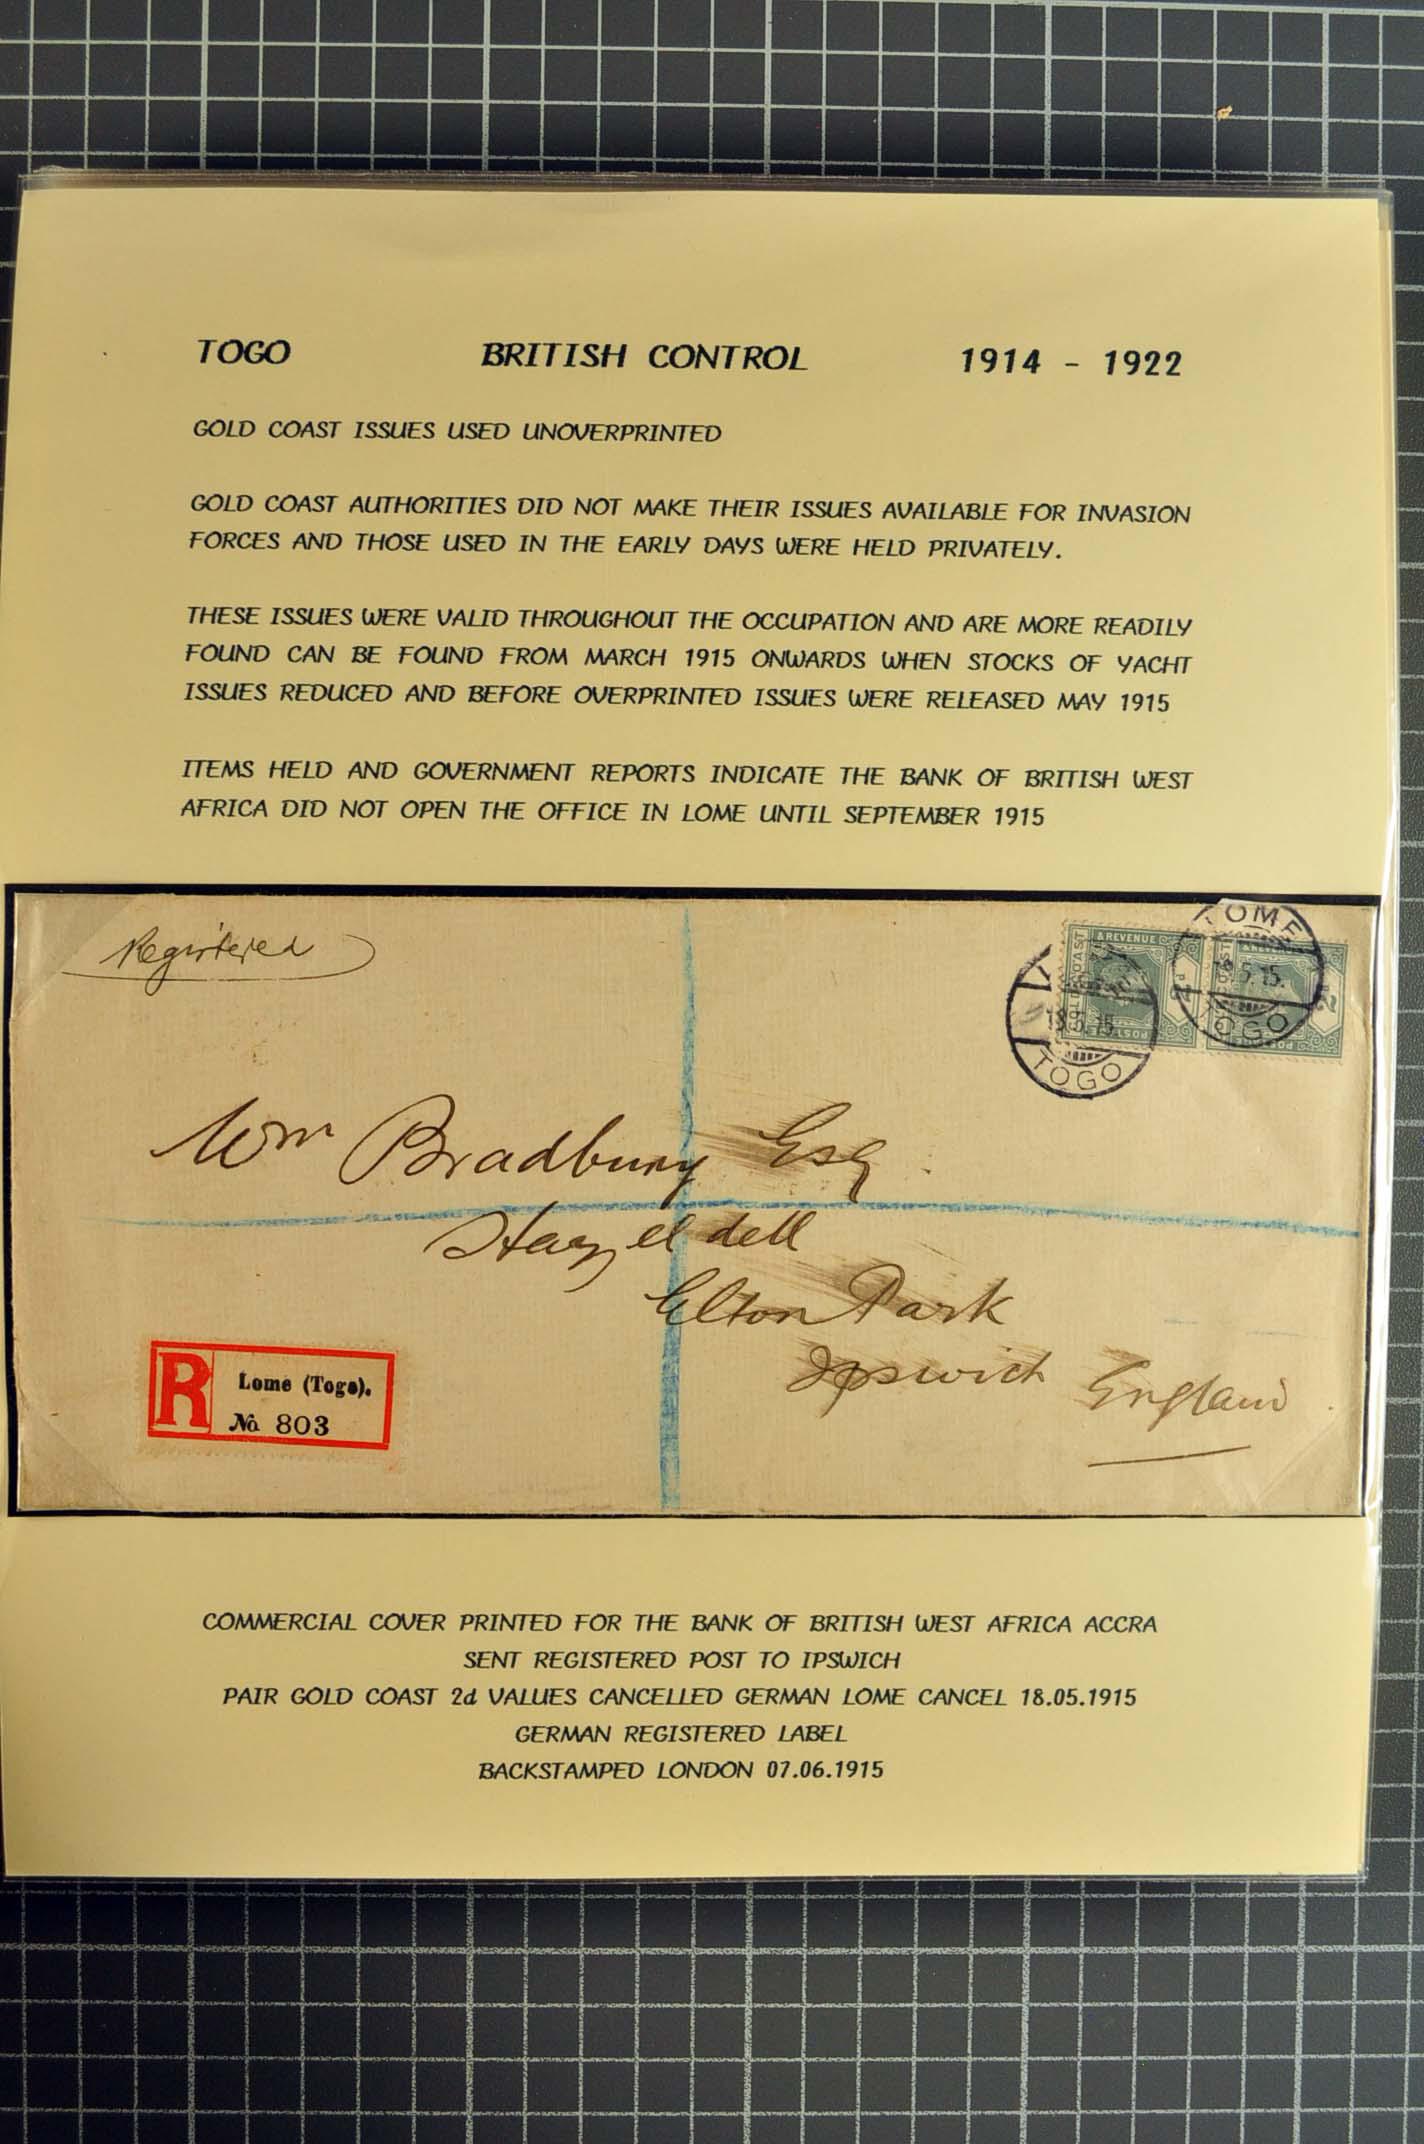 TOGO BRITISH CONTROL 1914 - 1922
GOLD COAST ISSUES USED UNOVERPRINTED
GOLD COAST AUTHORITIES DID NOT MAKE THEIR ISSUES AVAILABLE FOR INVASION
FORCES AND THOSE USED IN THE EARLY DAYS WERE HELD PRIVATELY.
THESE ISSUES WERE VALID THROUGHOUT THE OCCUPATION AND ARE MORE READILY
FOUND CAN BE FOUND FROM MARCH 1915 ONWARDS WHEN STOCKS OF YACHT
ISSUES REDUCED AND BEFORE OVERPRINTED ISSUES WERE RELEASED MAY 1915
ITEMS HELD AND GOVERNMENT REPORTS INDICATE THE BANK OF BRITISH WEST
AFRICA DID NOT OPEN THE OFFICE IN LOME UNTIL SEPTEMBER 1915
Registered
GOLD COAST
& REVENUE
POSTAGE
2d
18.5.15.
TOGO
LOME
18.5.15.
TOGO
Wm Bradbury Esq
Hazeldell
Elton Park
Ipswich England
R Lome (Togo).
No 803
COMMERCIAL COVER PRINTED FOR THE BANK OF BRITISH WEST AFRICA ACCRA
SENT REGISTERED POST TO IPSWICH
PAIR GOLD COAST 2d VALUES CANCELLED GERMAN LOME CANCEL 18.05.1915
GERMAN REGISTERED LABEL
BACKSTAMPED LONDON 07.06.1915